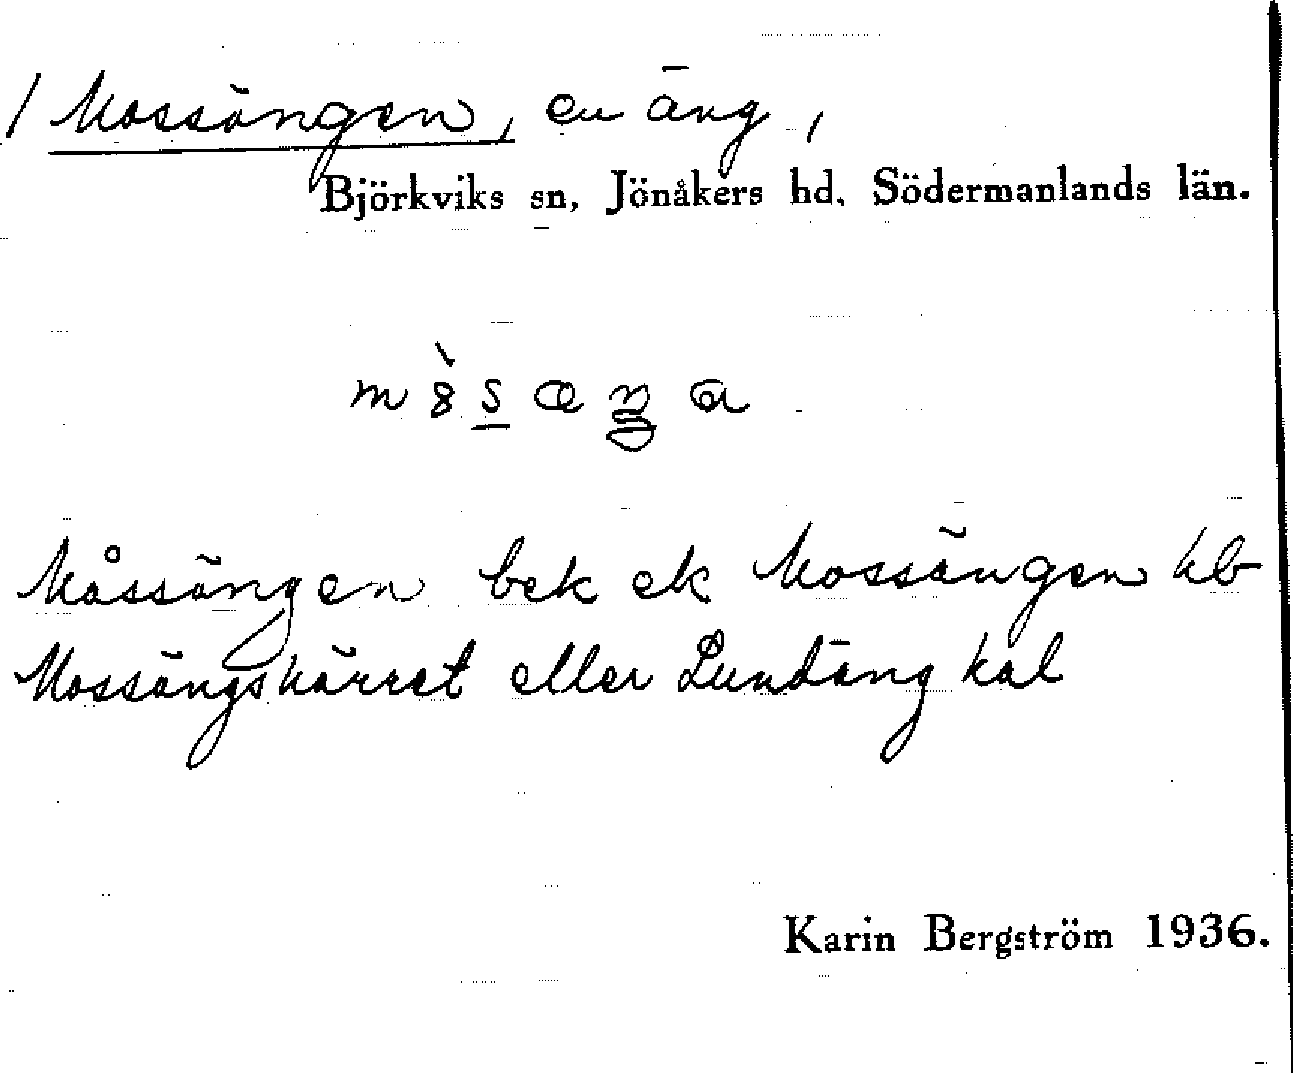 / Mossängen, en äng,
Björkviks sn, Jönåkers hd, Södermanlands län.
Måssängen bek ek Mossängen hb
Mossängskärret eller Lundäng kal
Karin Bergström 1936.